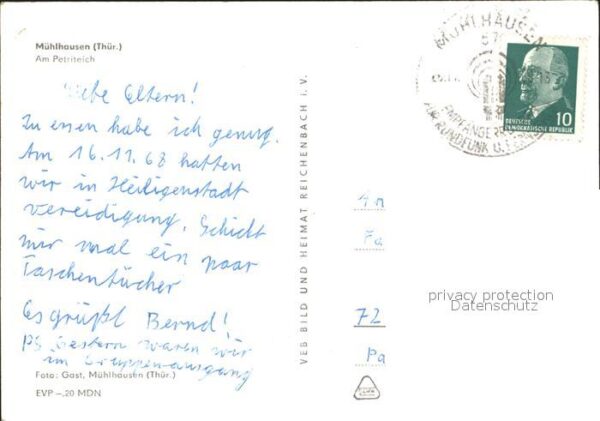 Mühlhausen (Thür.)
Am Petriteich
Liebe Eltern!
Zu essen habe ich genug.
Am 16.11.68 hatten
wir in Heiligenstadt
vereidigung. Schickt
mir mal ein paar
Taschentücher
Es grüßt Bernd!
PS Gestern waren wir
im Gruppenausgang
Foto: Gast, Mühlhausen (Thür.)
EVP –,20 MDN
VEB BILD UND HEIMAT REICHENBACH I. V.
MÜHLHAUSEN
57
EMPFÄNGER
FÜR RUNDFUNK U.
10
DEUTSCHE
DEMOKRATISCHE REPUBLIK
An
Fa
72
Pa
privacy protection
Datenschutz